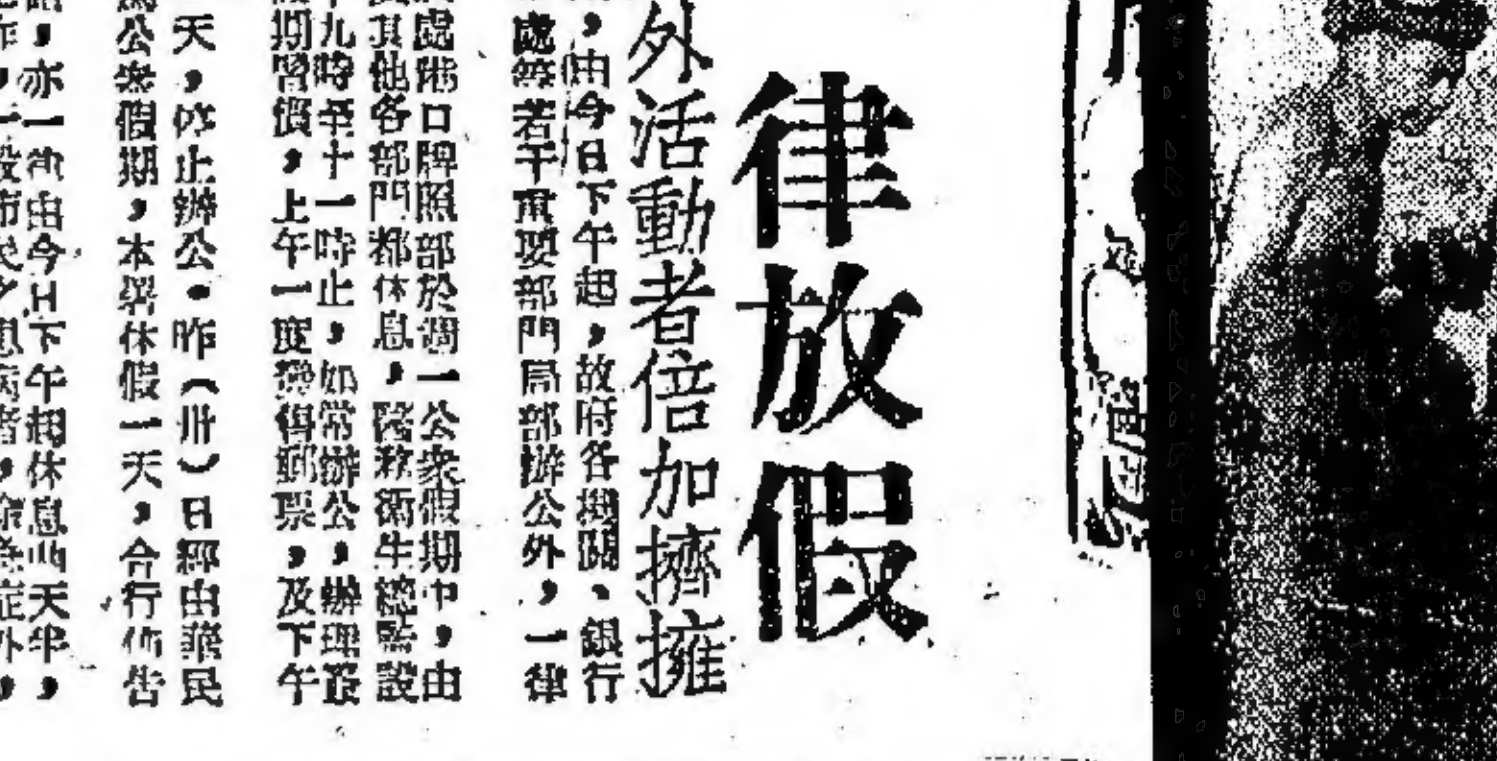 律放假
外活動者倍加擠擁
，由今日下午起，故府各機關、銀行
處等若干重要部門局部辦公外，一律
處港口牌照部於週一公衆假期中，由
其他各部門都休息，醫務衛生總監設
九時至十一時止，如常辦公，辦理
期習慣，上午一度發得郵票，及下午
天，停止辦公。昨（卅）日經由華民
公衆假期，本署休假一天，合行佈告
，亦一律由今日下午起休息兩天半，
，一般市民之患病者，除急症外，